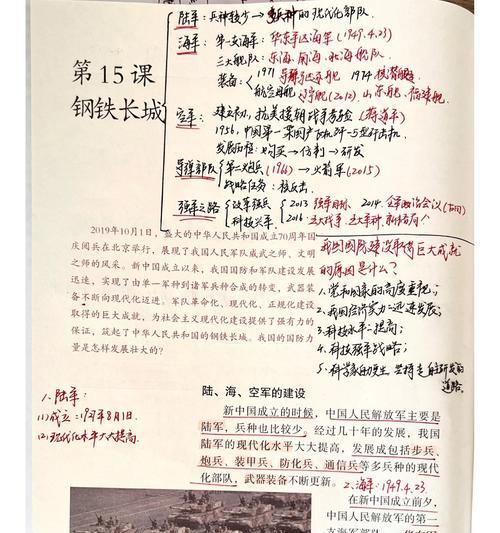 陆军：兵种较少→多兵种的现代化部队
海军：第一支海军：华东军区海军（1949.4.23）
三大舰队：东海、南海、北海舰队
装备：1971导弹驱逐舰 1974核潜艇
航空母舰：辽宁舰（2012）山东舰、福建舰
空军：建立初，抗美援朝战争考验（蒋道平）
1956，中国第一架国产歼-5型歼击机
发展历程：购买→仿制→研发
导弹部队：第二炮兵（1966）→火箭军（2015）
战略任务：核反击
强军之路
改革强兵
科技兴军
2013 强军目标、2014，全军政治会议（古田）
2016 五大战区，五大军种，
第15课
钢铁长城
2019年10月1日，盛大的中华人民共和国成立70周年国
庆阅兵在北京举行，展现了我国人民军队威武之师、文明
之师的风采。新中国成立以来，我国国防和军队建设发展
迅速，实现了由单一军种到诸军兵种合成的转变，武器装
备不断向现代化迈进。军队革命化、现代化、正规化建设
取得的巨大成就，为社会主义现代化建设提供了强有力的
保证，筑起了中华人民共和国的钢铁长城。我国的国防力
量是怎样发展壮大的？
我国国防建设取得巨大成就
的原因是什么？
1、党和国家的高度重视；
2、我国经济实力迅速发展；
3、科技水平提高；
4、科技强军战略；
5、科学家的
道路。
1、陆军：
(1)成立：1927年8月1日。
(2)现代化水平大大提高。
陆、海、空军的建设
新中国成立的时候，中国人民解放军主要是
陆军，兵种也比较少。经过几十年的发展，我国
陆军的现代化水平大大提高，发展成包括步兵、
炮兵、装甲兵、防化兵、通信兵等多兵种的现代
化部队，武器装备不断更新。
2、海军：1949.4.23
在新中国成立前夕，
中国人民解放军的第一